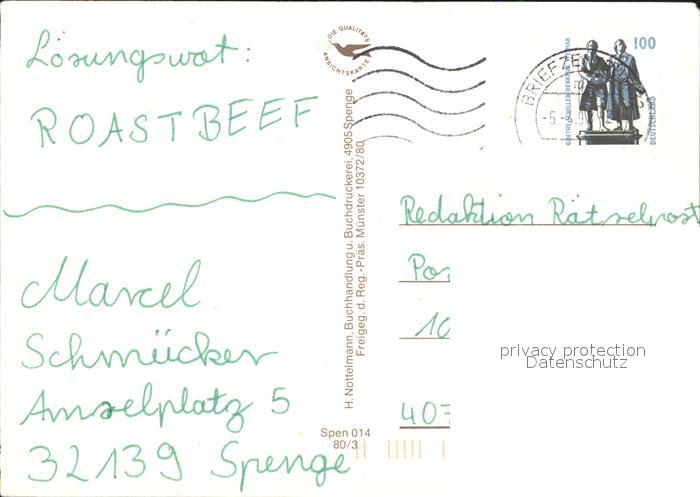 Lösungswot:
ROASTBEEF
Marcel
Schmücker
Amselplatz 5
32139 Spenge
DIE QUALITÄTS
ANSICHTSKARTE
H. Nottelmann, Buchhandlung u. Buchdruckerei, 4905 Spenge
Freigeg. d. Reg.-Präs. Münster 10372/80
Spen 014
80/3
BRIEFZE
-5.-
100
GOETHE-SCHILLER-DENKMAL
DEUTSCHLAND
Redaktion Rätselpost
Po
10
407
privacy protection
Datenschutz